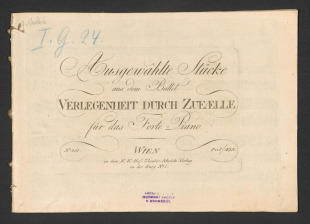 I. G. 24
Ausgewählte Stücke
aus dem Ballet
VERLEGENHEIT DURCH ZUFÆLLE
für das Forte-Piano
WIEN
in dem K. K. Hof-Theater-Musik-Verlag
in der Burg No 1.